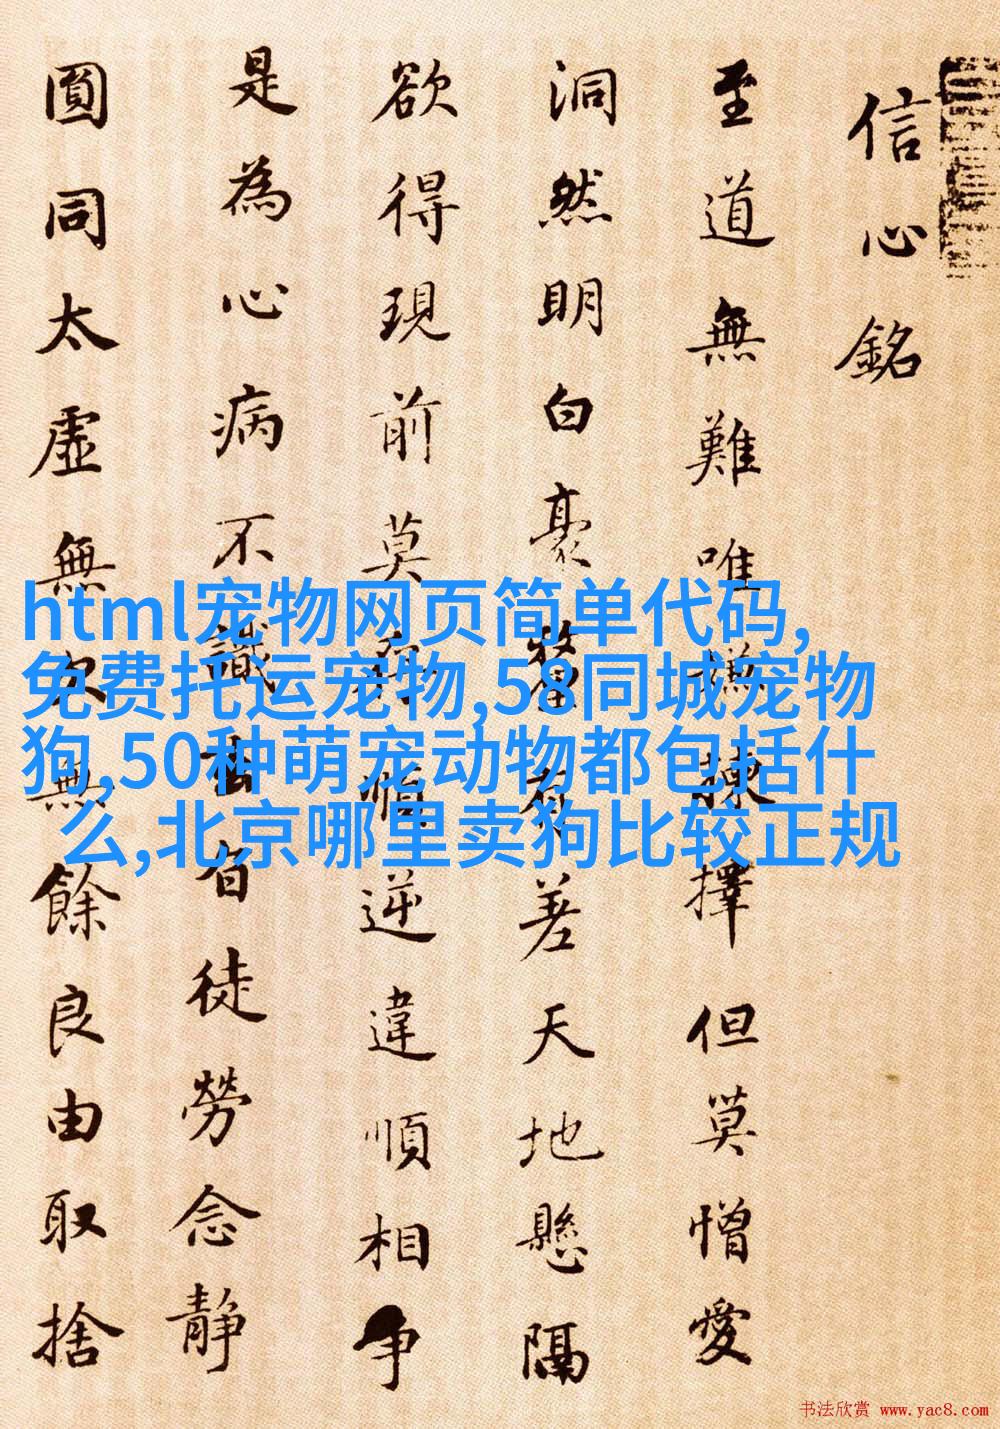 信心銘
至道無難唯嫌揀擇但莫憎愛
洞然明白豪釐有差天地懸隔
欲得現前莫存順逆違順相争
是為心病不識玄旨徒勞念静
圓同太虛無欠無餘良由取捨
html宠物网页简单代码,
免费托运宠物,58同城宠物
狗,50种萌宠动物都包括什
么,北京哪里卖狗比较正规
书法欣赏 www.yac8.com